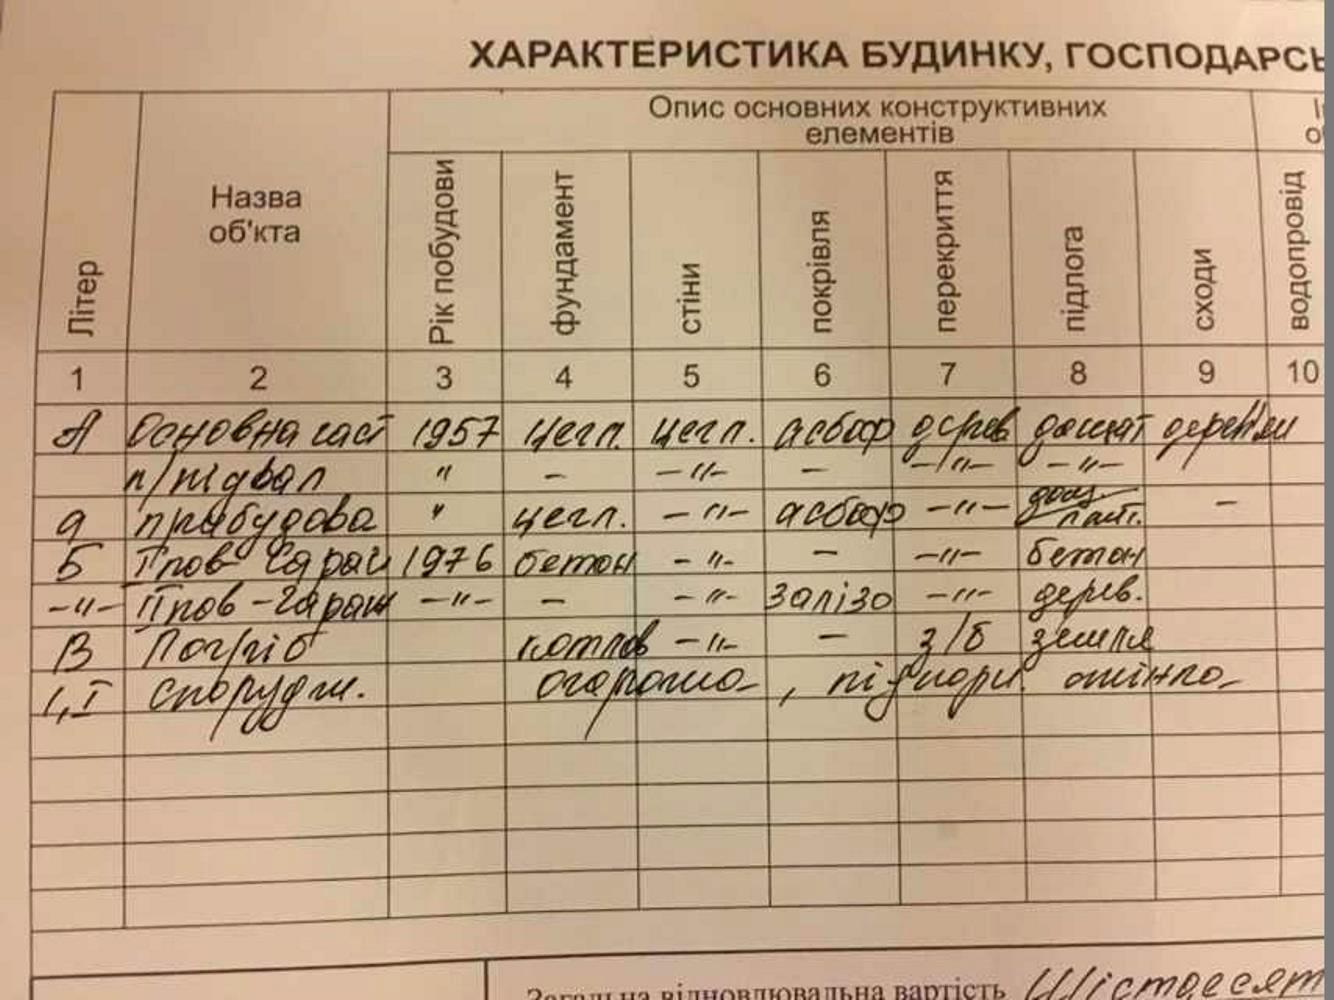 ХАРАКТЕРИСТИКА БУДИНКУ, ГОСПОДАРСЬ
Літер
Назва
об'кта
Опис основних конструктивних
елементів
Рік побудови
фундамент
стіни
покрівля
перекриття
підлога
сходи
водопровід
1 2 3 4 5 6 7 8 9 10
А Основна част 1957 цегл. цегл. асбоф дерев дощат
п/підвал " - -"- - -"- -"-
а прибудова " цегл. -"- асбоф -"- дощ. -
Б І пов Сарай 1976 бетон -"- - -"- бетон
-"- ІІ пов - Гараж -"- - -"- залізо -"- дерев.
В Погріб -"- - з/б земля
1, І споруди. огорожа,
Загальна відновлювальна вартість Шістдесят